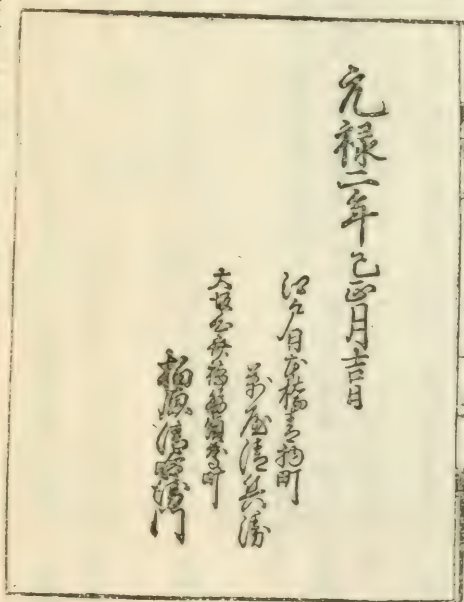 元禄二年巳正月吉日
江戸日本橋青物町
萬屋清兵衛
大坂心斎橋筋順慶町
柏原清右衛門